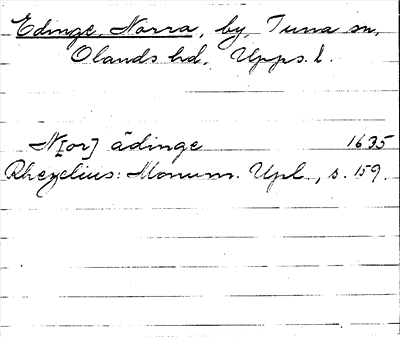 Edinge, Norra, by, Tuna sn,
Olands hd, Upps. l.
N[or] ädinge 1635
Rhezelius: Monum. Upl., s. 159.